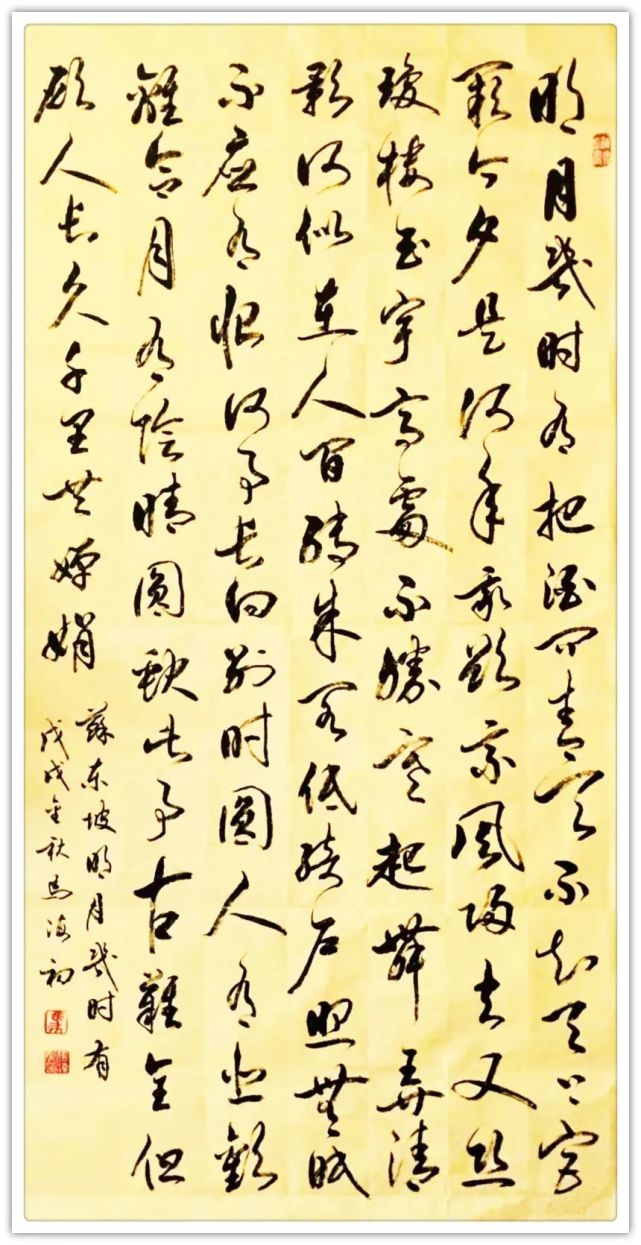 明月幾时有把酒问青天不知天上宫
阙今夕是何年我欲乘风归去又恐
瓊楼玉宇高處不勝寒起舞弄清
影何似在人间转朱阁低绮户照無眠
不应有恨何事长向别时圓人有悲歡
離合月有陰晴圓缺此事古難全但
願人长久千里共嬋娟
蘇东坡明月幾时有
戊戌金秋马海初